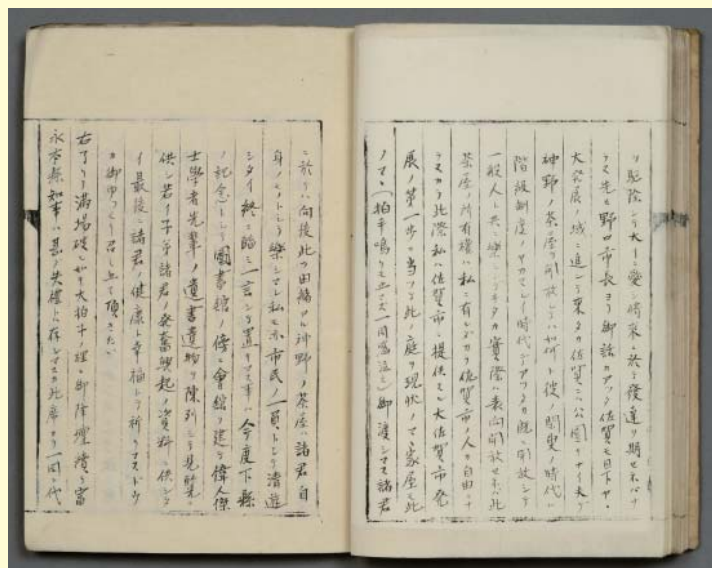 リ駆除シテ大ニ愛シ將来ニ於テ發達ヲ期セネバナ
ラズ先モ野口市長ヨリ御話カアッタ佐賀モ目下ヤヽ
大発展ノ域ニ進ンデ来タカ佐賀ニハ公園カナイ夫デ
神野ノ茶屋ヲ開放シテハ如何ト彼ノ閑叟ノ時代ハ
階級制度ノヤカマシイ時代デアツタカ既ニ開放シテ
一般人ト共ニ樂シンデキタカ實際ハ表向開放セネバ此
茶屋ノ所有權ハ私ニ有レドカラ佐賀市ノ人カ自由ニナ
ラヌカラ此際私ハ佐賀市ニ提供スル大佐賀市発
展ノ第一歩ニ当ツテ此ノ庭ヲ現状ノマヽ家屋モ此
ノマヽ(拍手鳴リモ止マズ一同感泣ス)御渡シマス諸君
ニ於テハ向後此ノ由緒アル神野ノ茶屋ハ諸君ノ自
身ノモノトシテ樂シマレ私モ亦市民ノ一員トシテ清遊
シタイ終ニ臨ミ一言シテ置キマス事ハ今度下縣
ノ記念トシテ圖書館ノ傍ニ會館ヲ建テ偉人傑
士學者先輩ノ遺書遺物ヲ陳列シテ見覧ニ
供シ若イ子弟諸君ノ発奮興起ノ資料ニ供シタ
イ最後ニ諸君ノ健康ト幸福トヲ祈リマスドウ
カ御ゆっくり召シ上テ頂キたい
右了リテ満場破レル如キ大拍手ノ裡ニ御降壇續テ富
永本縣知事ハ甚タ失禮ト存シマスカ此席カラ一同ニ代